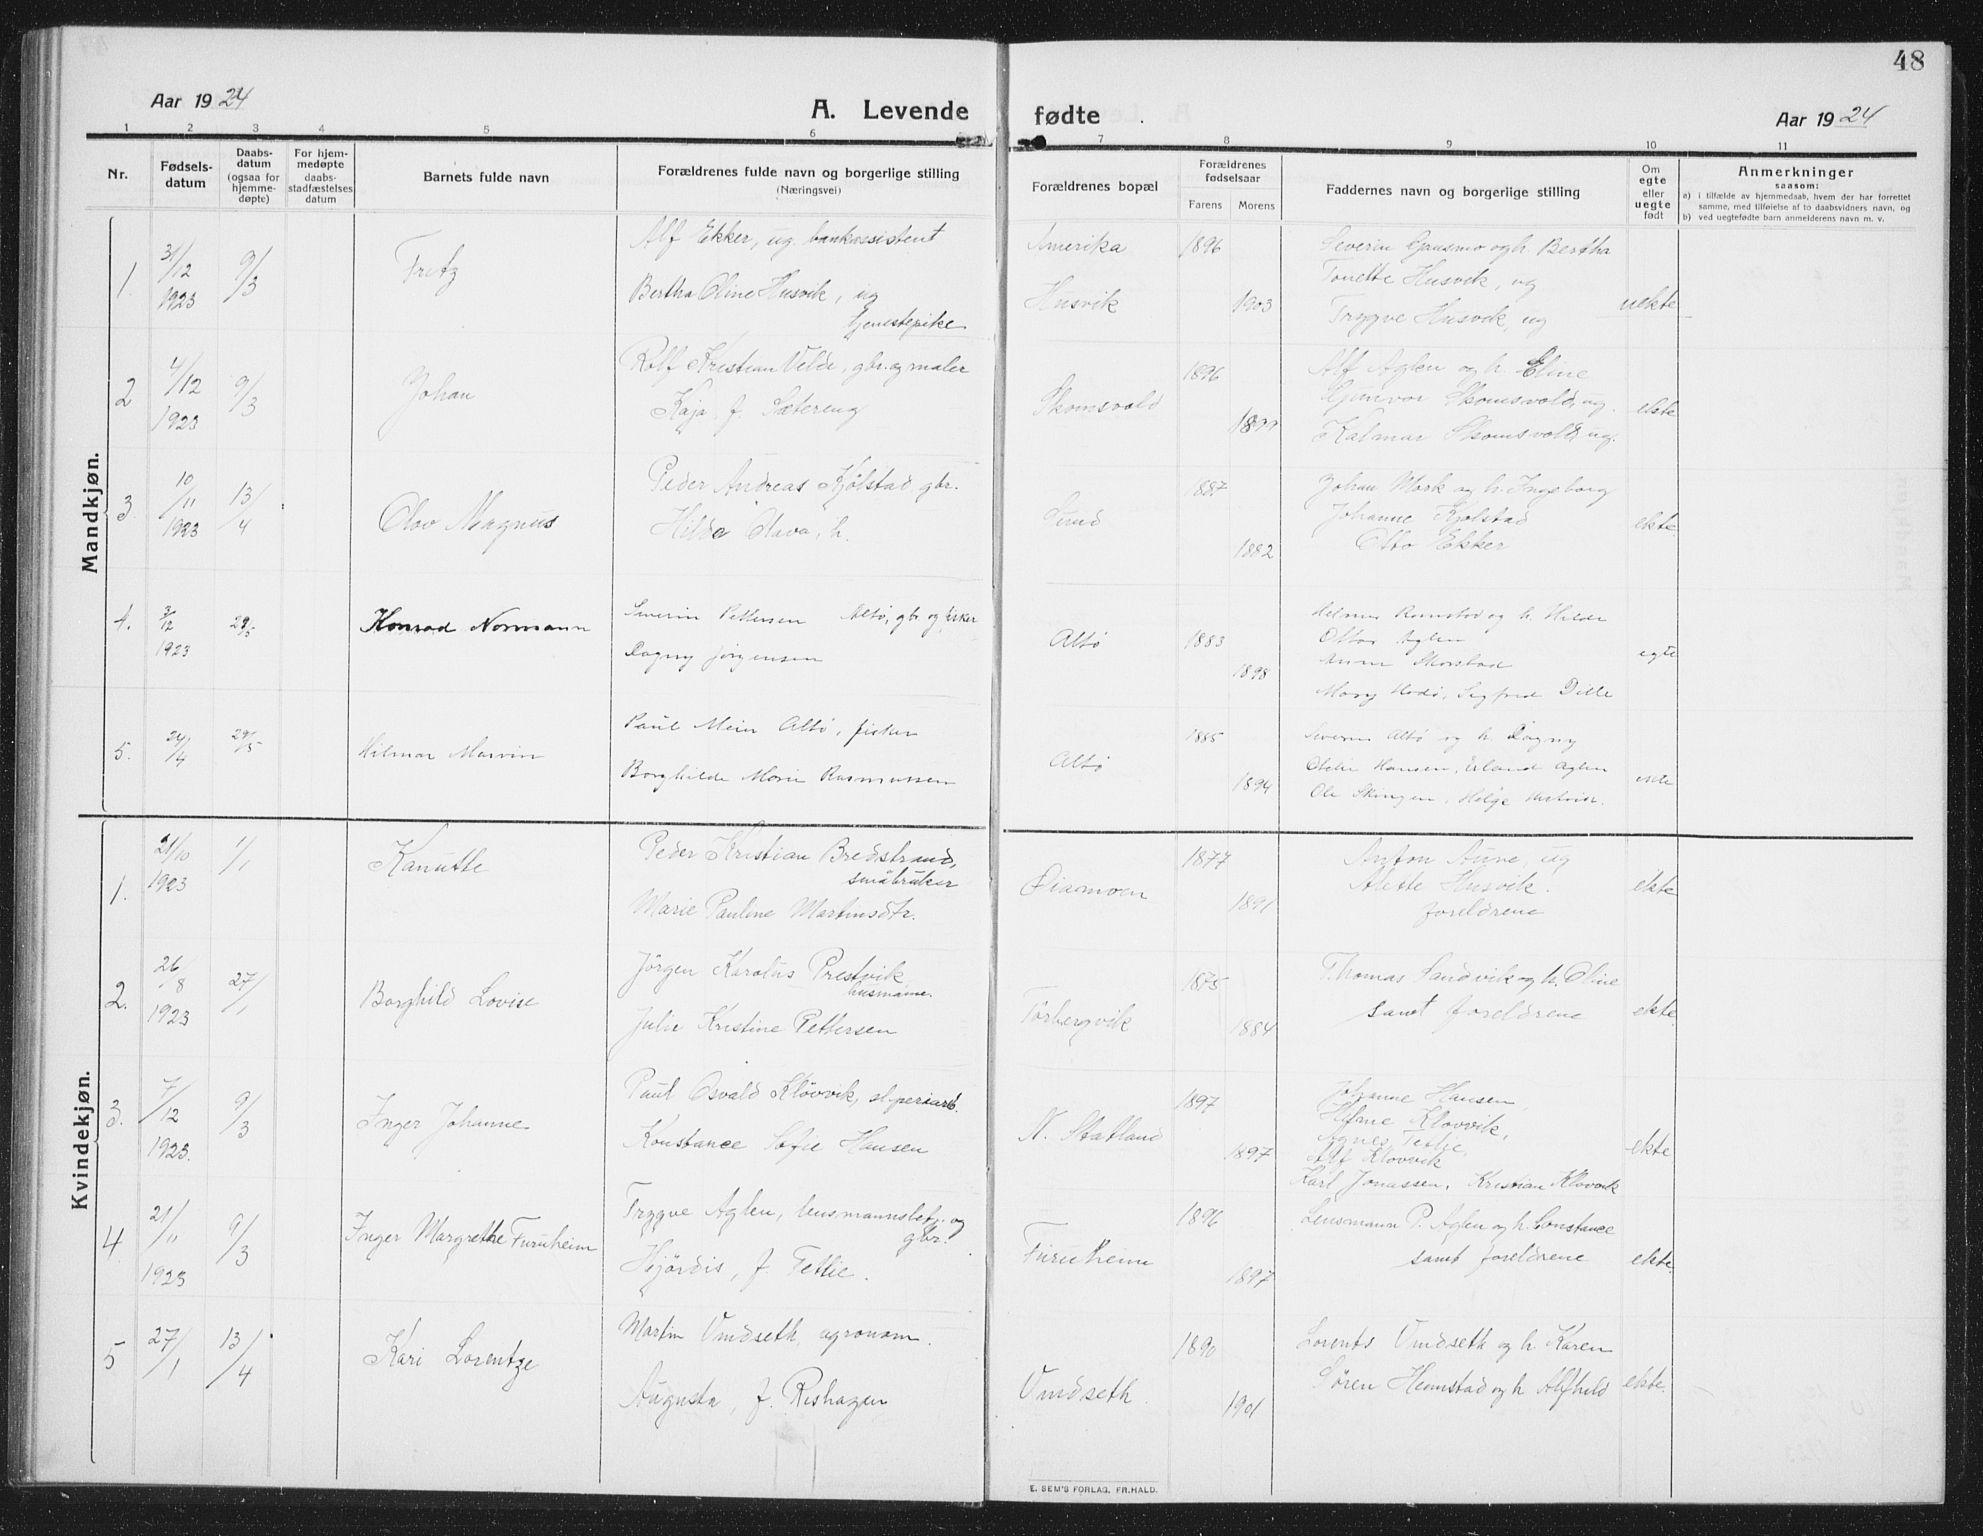 48
Aar 1924
A. Levende fødte
Aar 1924
1 2 3 4 5 6 7 8 9 10 11
Nr.
Fødsels-
datum
Daabs-
datum
(ogsaa for
hjemme-
døpte)
For hjem-
medøpte
daabs-
stadfæstelses
datum
Barnets fulde navn
Forældrenes fulde navn og borgerlige stilling
(Næringsvei)
Forældrenes bopæl
Forældrenes
fødselsaar
Farens Morens
Faddernes navn og borgerlige stilling
Om
egte
eller
uegte
født
Anmerkninger
saasom:
a) i tilfælde av hjemmedaab, hvem der har forrettet
samme, med tilføielse af to daabsvidners navn, og
b) ved uegtefødte barn anmelderens navn m. v.
Mandkjøn.
1.
31/12
1923
9/3
Fritz
Alf Ekker, ug. bankassistent
Bertha Oline Husvik, ug
tjenestepike
Amerika
Husvik
1896
1903
Severin Gausmo og h. Bertha
Tonette Husvik, ug
Trygve Husvik, ug
uekte
2
4/12
1923
9/3
Johan
Rolf Kristian Velde, gbr. og maler
Kaja f. Sætereng
Skomsvold
1896
1899
Alf Aglen og h. Eline
Gunvor Skomsvold, ug.
Kalmar Skomsvold, ug.
ekte
3
10/11
1923
13/4
Olav Magnus
Peder Andreas Kjølstad gbr.
Hilda Olava, h.
Sund
1887
1882
Johan Mork og h. Ingeborg
Johanne Kjølstad
Otto Ekker
ekte
4.
3/12
1923
29/5
Konrad Normann
Severin Pettersen Altø, gbr. og fisker
Dagny Jörgensen
Altö
1883
1898
Ramstad og h. Hilda
Aglen
Anna Skorstad
Mary Hodö, Sigfred Dille
egte
5.
24/4
29/5
Hilmar Marvin
Paul Mein Altö, fisker
Borghilde Marie Rasmussen
Altö
1885
1894
Severin Altö og h. Dagny
Hansen, Erland Aglen
Ole Skingen, Helge
Kvindekjøn.
1.
21/10
1923
1/1
Kanutte
Peder Kristian Bredstrand,
småbruker
Marie Pauline Martinsdtr.
Öiamoen
1877
1891
Anton Aune, ug
Alette Husvik.
foreldrene
ekte
2.
26/8
1923
27/1
Borghild Lovise
Jörgen Karolus Prestvik
husmann.
Julie Kristine Pettersen
Törbergvik
1875
1884
Thomas Sandvik og h. Oline
samt foreldrene
ekte.
3.
7/12
1923.
9/3
Inger Johanne
Paul Osvald Klövvik, sliperiarb.
Konstance Sofie Hansen
N. Statland
1897
1897
Johanne Hansen,
Klövvik,
Agnes Tetlie,
Alf Klövvik
Karl Jonassen, Kristian Klövvik
ekte
4
21/11
1923
9/3
Inger Margrethe Furuheim
Trygve Aglen, lensmannsbetj. og
gbr.
Hjördis, f. Tetlie.
Furuheim
1896
1897
Lensmann P. Aglen og h. Constance
samt foreldrene
ekte.
5
27/1
13/4
Kari Lorentze
Martin Vindseth, agronom.
Augusta, f. Rishagen
Vindseth.
1890
1901
Lorents Vindseth og h. Karen
Sören Hemstad og h. Alfhild
ekte.
E. SEM'S FORLAG, FR.HALD.